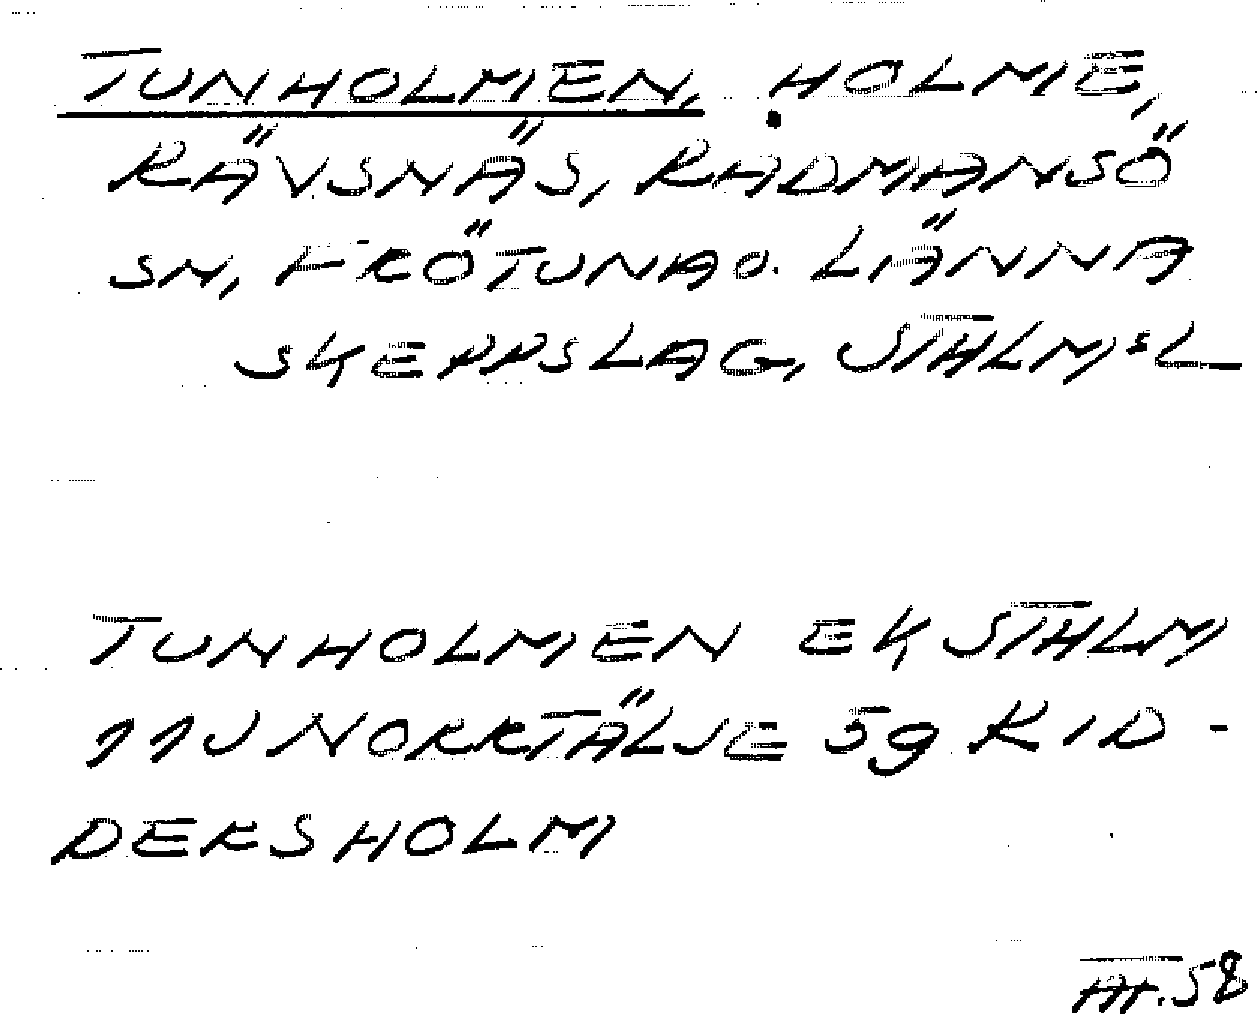 TUNHOLMEN, HOLME,
RÄVSNÄS, RADMANSÖ
SN, FRÖTUNA O. LÄNNA
SKEPPSLAG, STHLMSL
TUNHOLMEN EK STHLM
11J NORRTÄLJE 5g RID-
DERSHOLM